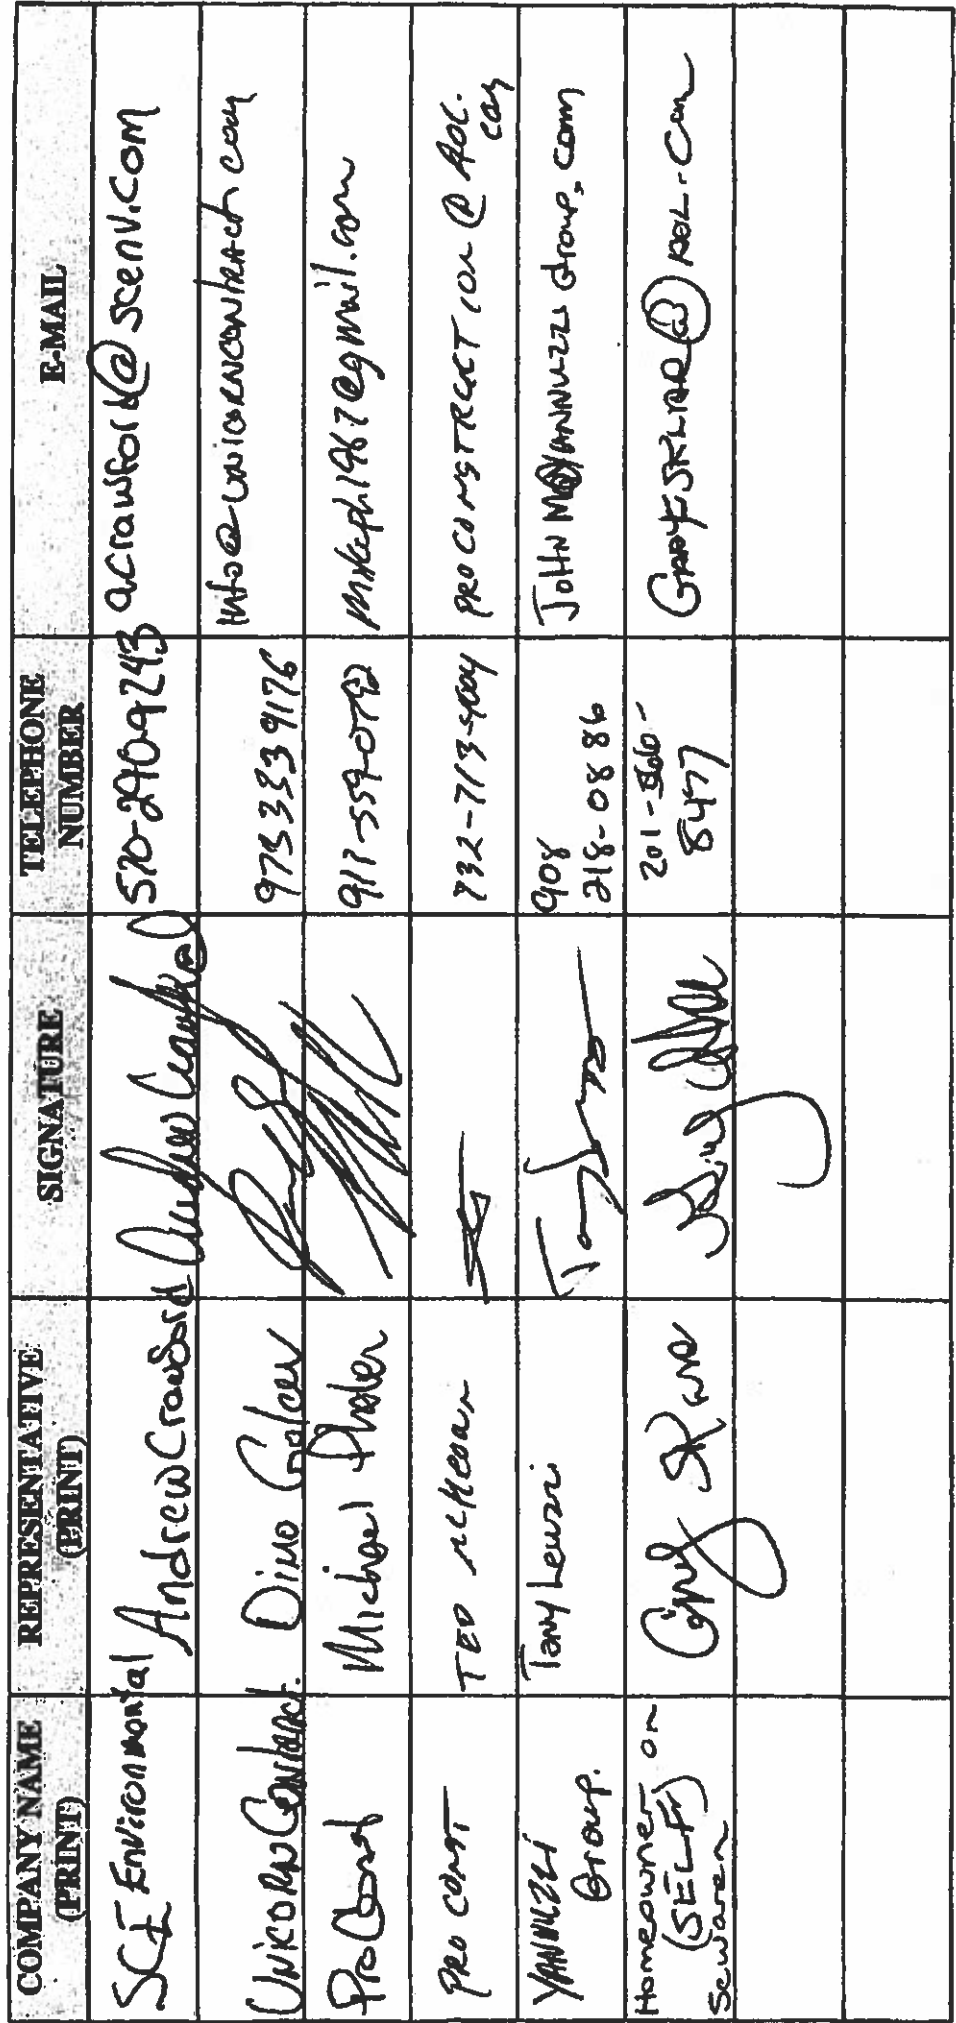 COMPANY NAME
(PRINT)
REPRESENTATIVE
(PRINT)
SIGNATURE
TELEPHONE
NUMBER
E-MAIL
SCE Environmental
Andrew Crawford
Andrew Crawford
570-290-9243
acrawford@scenv.com
UNICORN Contract.
Dino
9733339176
info@unicorncontract.com
ProConst
Michael
917-559-0792
mikeph1967@gmail.com
PRO CONST
TED McKeon
732-713-4004
PROCONSTRUCTION @ AOL.
com
YANNUZZI
Group.
Tony
908
218-0886
JOHNM@YANNUZZIGroup.com
Homeowner on
(SELF)
Sewaren
Gary
201-
8477
GARYESKLAR@AOL.com